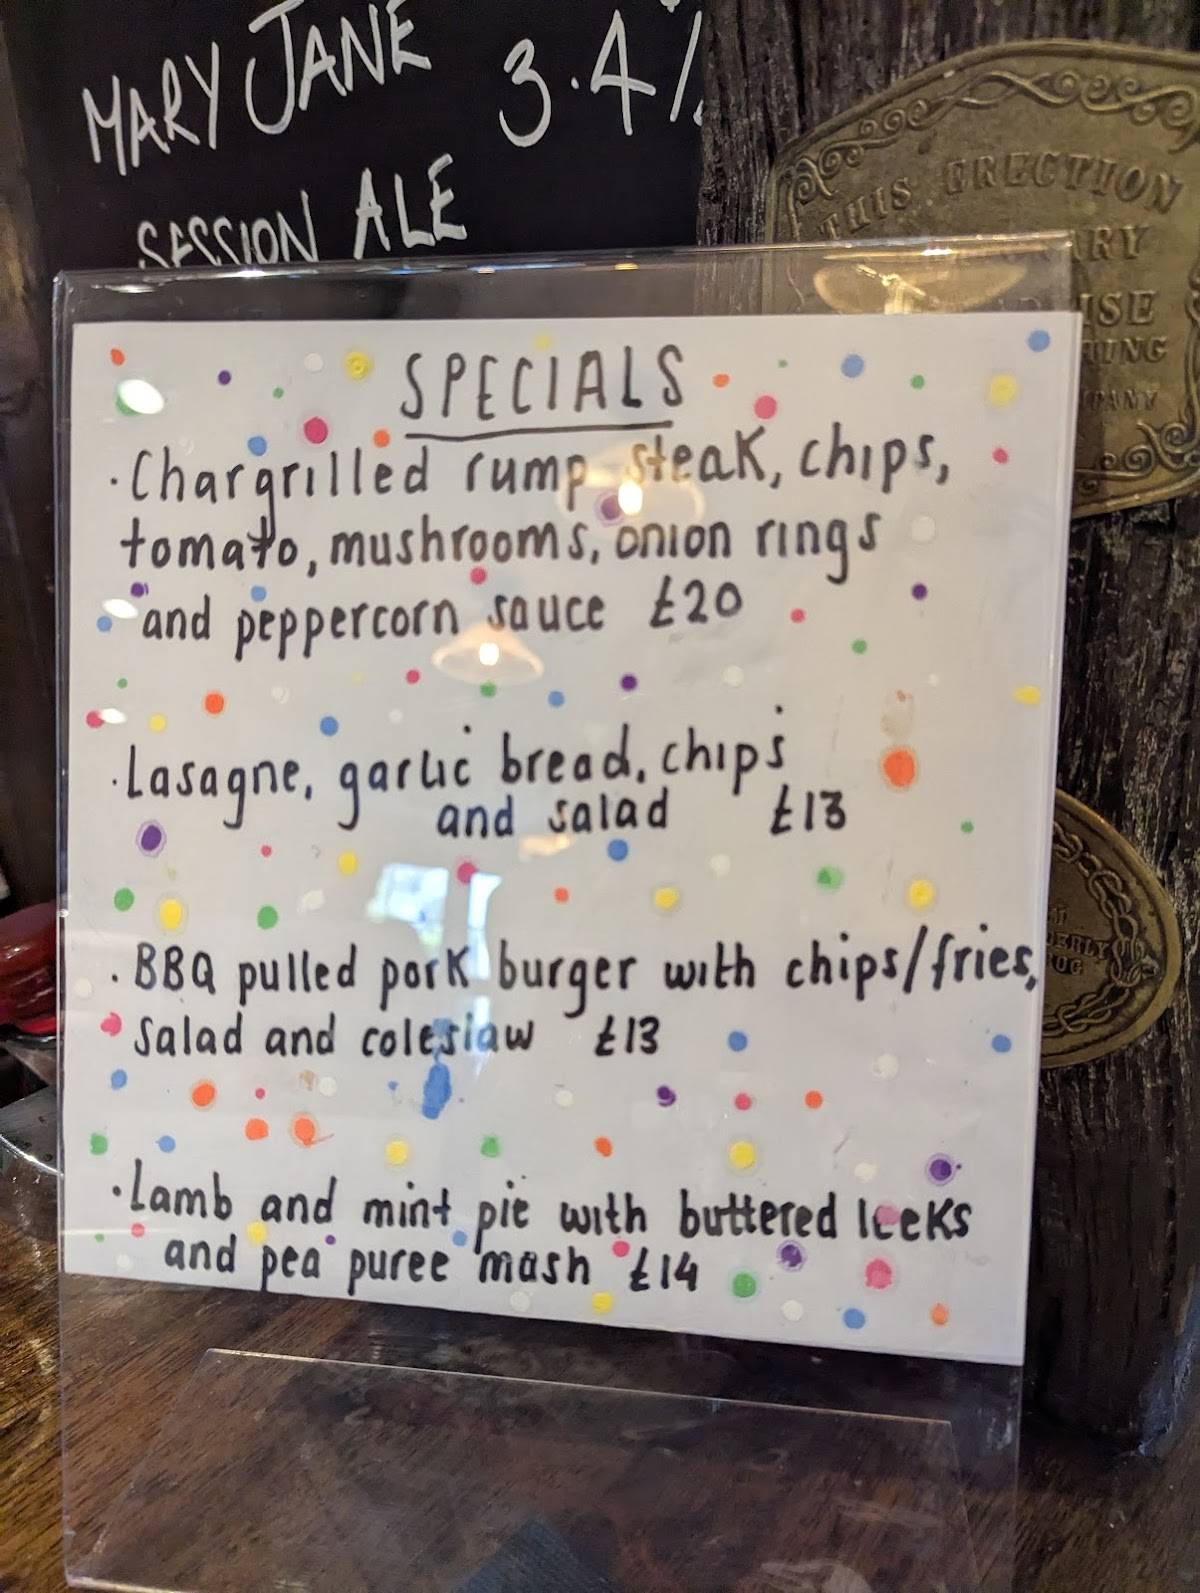 MARY JANE 3.4%
SESSION ALE
THIS ERECTION
SPECIALS
· Chargrilled rump steak, chips,
tomato, mushrooms, onion rings
and peppercorn sauce £20
· Lasagne, garlic bread, chips
and salad £13
· BBQ pulled pork burger with chips/fries,
salad and coleslaw £13
· Lamb and mint pie with buttered leeks
and pea puree mash £14